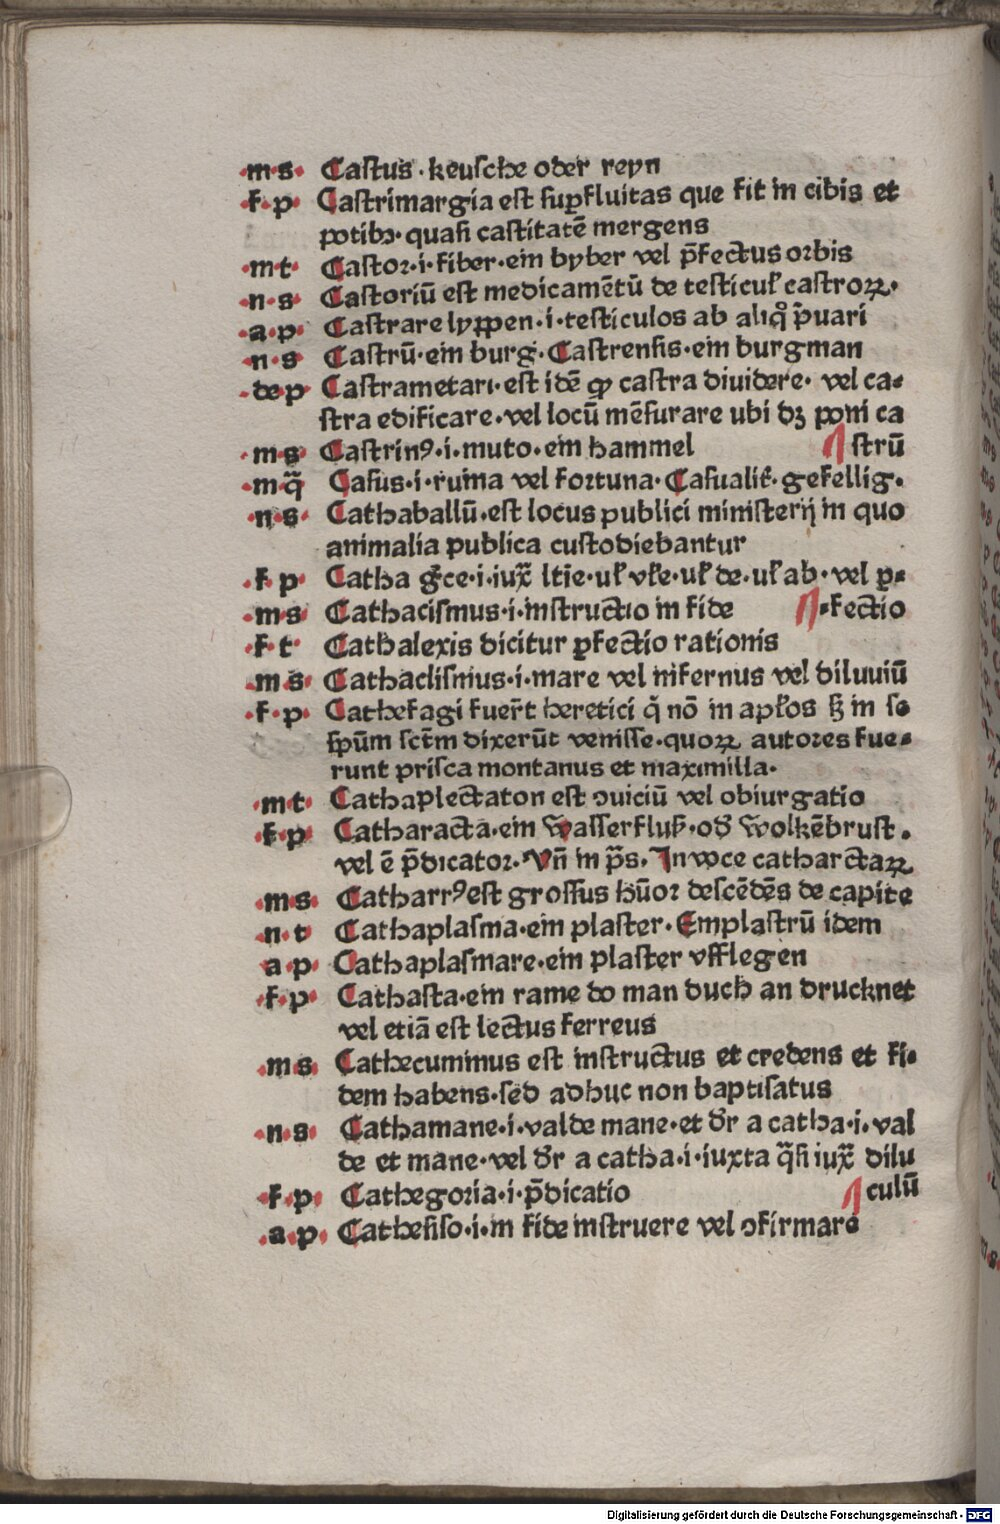 ·m·s· Castus · keusche oder reyn
·f·p· Castrimargia est suꝑfluitas que fit in cibis et
potibꝫ· quasi castitatē mergens
·m t· Castor·i·fiber·ein byber vel p̄fectus orbis
·n·s· Castoriū est medicamētū de testicul̓ castroꝝ·
·a·p· Castrare lyppen·i·testiculos ab aliqͦ p̄uari
·n·s· Castrū·ein burg·Castrensis·ein burgman
·de p· Castrametari·est idē qͫ castra diuidere· vel ca-
stra edificare·vel locū mēsurare ubi dꝫ poni ca
·m·s· Castrinꝰ·i·muto·ein hammel strū
·m·q̄· Casus·i·ruina vel fortuna·Casualit̓·gefellig·
·n·s· Cathaballū·est locus publici ministerij in quo
animalia publica custodiebantur
·f p· Catha g̅ce·i·iux̄ ltīe·ul̓ vl̓e·ul̓ de·ul̓ ab·vel ꝑ-
·m·s· Cathacismus·i·instructio in fide -fectio
·f·t· Cathalexis dicitur ꝑfectio rationis
·m s· Cathaclismus·i·mare vel infernus vel diluuiū
·f·p· Cathefagi fuer̄t heretici q̇ nō in apl̓os sꝫ in se
spūm sctm̄ dixerūt venisse·quoꝝ autores fue-
runt prisca montanus et maximilla·
·m t· Cathaplectaton est ꝯuiciū vel obiurgatio
·f·p· Catharacta·ein wasserfluß·od̓ wolkēbrust·
vel ē p̄dicator·Vn̄ in p̄s·In voce catharctaꝝ
·m s· Catharrꝰ est grossus hūor descēdēs de capite
·n·t· Cathaplasma·ein plaster·Emplastrū idem
a p· Cathaplasmare·ein plaster vfflegen
·f·p· Cathasta·ein rame do man duch an drucknet
vel etiā est lectus ferreus
·m s· Cathecuminus est instructus et credens et fi-
dem habens·sed adhuc non baptisatus
·n·s· Cathamane·i·valde mane·et d̓r a catha·i·val
de et mane·vel d̓r a catha·i·iuxta q̄si iux̄ dilu
·f·p· Cathegoria·i·p̄dicatio culū
·a·p· Cathesiso·i·in fide instruere vel ꝯfirmare
Digitalisierung gefördert durch die Deutsche Forschungsgemeinschaft - DFG